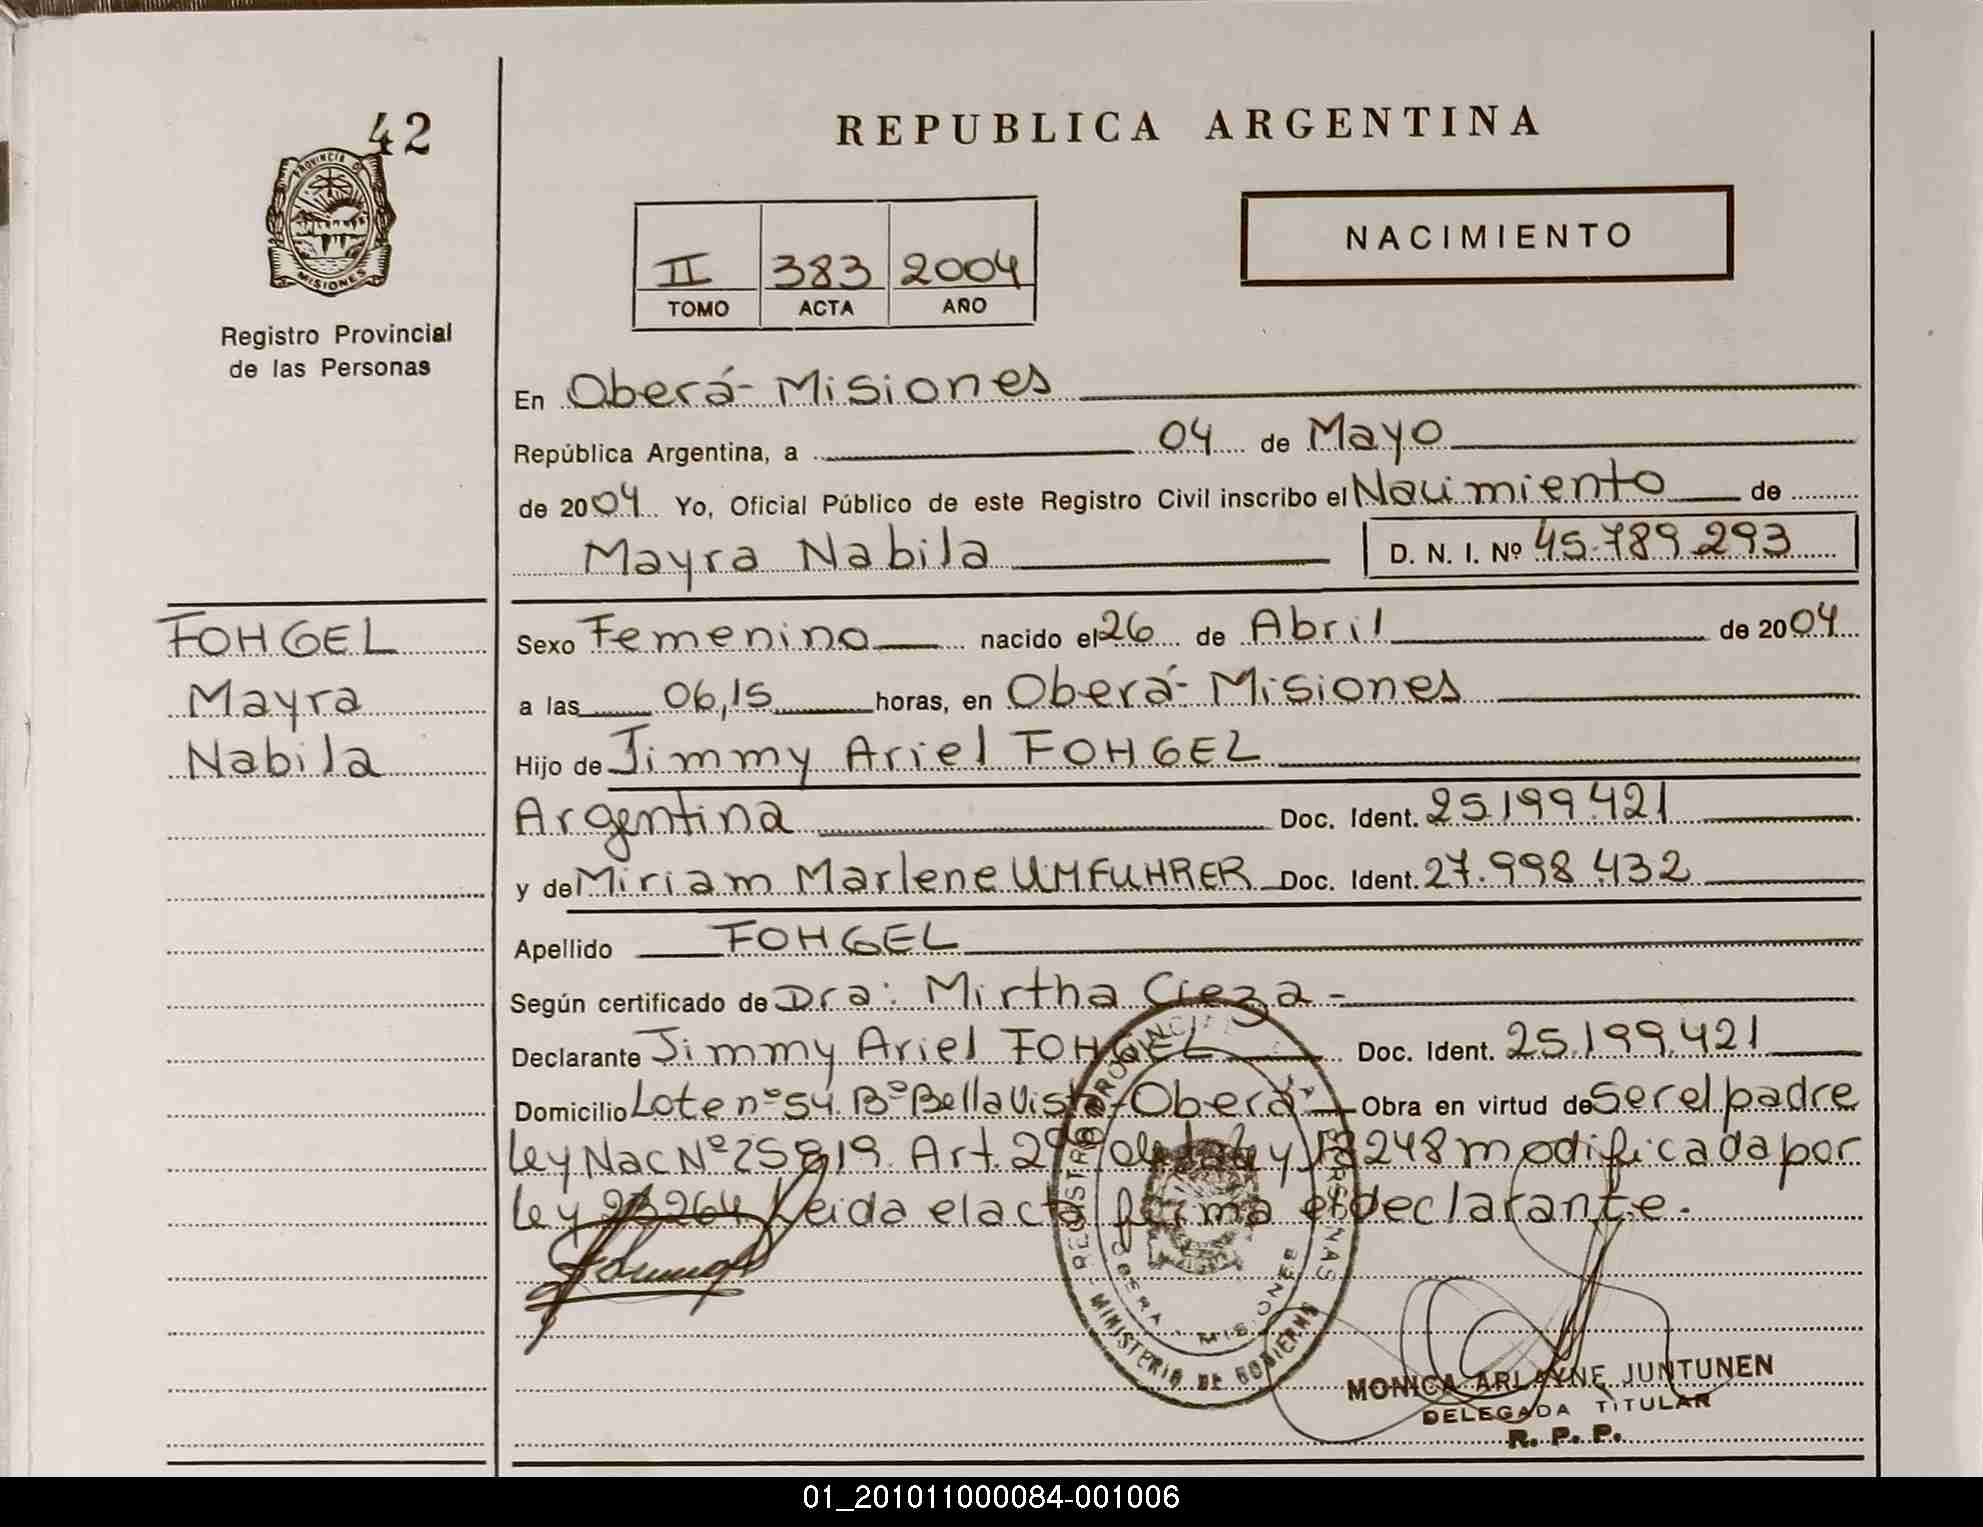 42
PROVINCIA DE
MISIONES
Registro Provincial
de las Personas
FOHGEL
Mayra
Nabila
REPUBLICA ARGENTINA
NACIMIENTO
II 383 2004
TOMO ACTA AÑO
En Oberá- Misiones
República Argentina, a 04 de Mayo
de 2004 Yo, Oficial Público de este Registro Civil inscribo el Nacimiento de
Mayra Nabila D. N. I. Nº 45.789.293
Sexo Femenino nacido el 26 de Abril de 2004
a las 06,15 horas, en Oberá- Misiones
Hijo de Jimmy Ariel FOHGEL
Argentina Doc. Ident. 25.199.421
y de Miriam Marlene UMFUHRER Doc. Ident. 27.998.432
Apellido FOHGEL
Según certificado de Dra: Mirtha Cieza -
Declarante Jimmy Ariel FOHGEL Doc. Ident. 25.199.421
Domicilio Lote nº 54. Bº Bella Vista-Oberá- Obra en virtud de Ser el padre
Ley Nac Nº 25819. Art. 29 de la Ley 18248 modificada por
Ley 23264 Leida el acta firma el declarante.
REGISTRO PROVINCIAL PERSONAS
OBERA - MISIONES
MINISTERIO DE GOBIERNO
MONICA ARLAYNE JUNTUNEN
DELEGADA TITULAR
R. P. P.
01_201011000084-001006